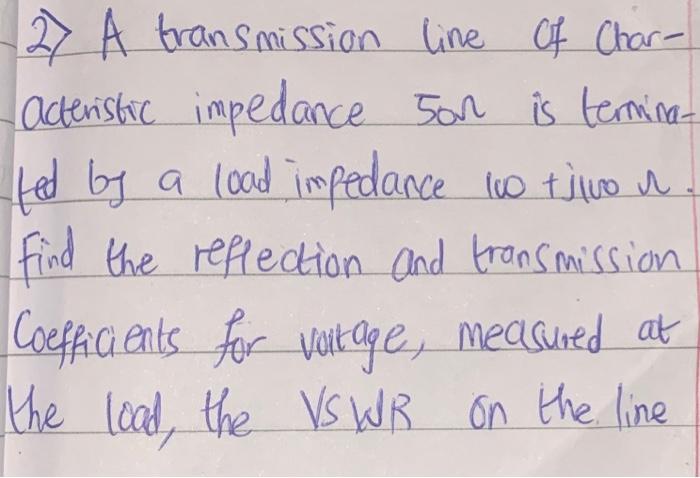 2) A transmission line of Char-
acteristic impedance 50Ω is termina-
ted by a load impedance 100 + j100 Ω.
Find the reflection and transmission
Coefficients for voltage, measured at
the load, the VSWR on the line